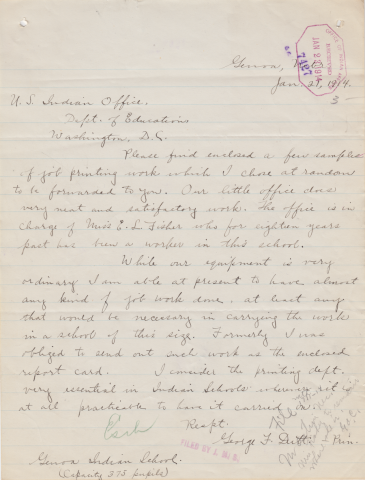 Genoa,
JAN 29 1914
7427
Jan. 27, 1914.
3
U. S. Indian Office.
Dept. of Education
Washington, D.C.
Please find enclosed a few samples
of job printing work which I chose at random
to be forwarded to you. Our little office does
very neat and satisfactory work. The office is in
charge of Miss E. L. Fisher who for eighteen years
past has been a worker in this school.
While our equipment is very
ordinary I am able at present to have almost
any kind of job work done, at least any
that would be necessary in carrying the work
in a school of this size. Formerly I was
obliged to send out such work as the enclosed
report card. I consider the printing dept.
very essential in Indian Schools wherever it is
at all practicable to have it carried on.
Respt.
George F. Prin.
Encl.
FILED BY
Genoa Indian School.
(Capacity 375 pupils)